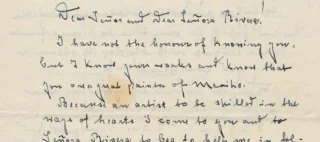 Dear Señor and Dear Señora Rivera!
I have not the honour of knowing you,
but I know your works and know that
you are great painter of Mexiko.
Because an artist to be skilled in the
ways of hearts I come to you and to
Señora Rivera to beg to help me in fol-